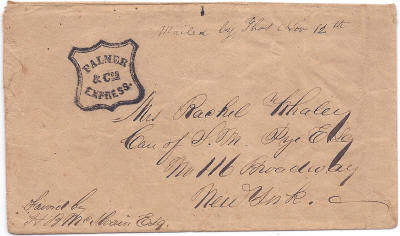 Mailed by Thos Nov 12th
PALMER
& Co's
EXPRESS.
Mrs Rachel Whaley
Care of S. M. Pyer Esq
No 116 Broadway
New York.
Favord by
H B McIlvain Esq.